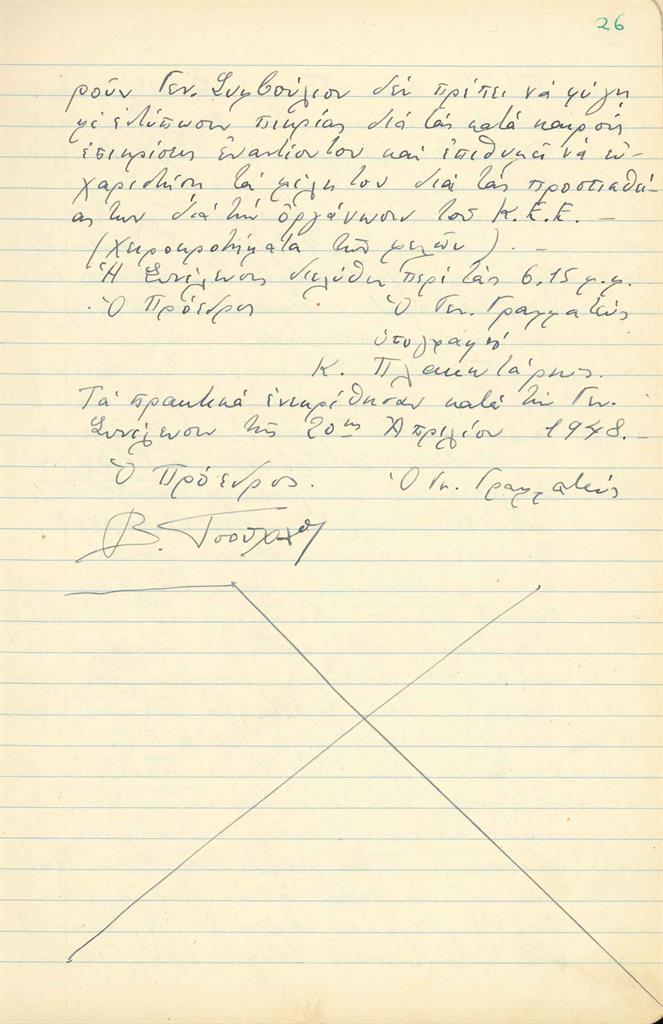 26
ροῦν Γεν. Συμβούλιον δέν πρέπει νά φύγῃ
μέ ἐντύπωσιν πικρίας διά τάς κατά καιρούς
ἐπικρίσεις ἐναντίον του καί ἐπιθυμεῖ νά εὐ-
χαριστήσῃ τά μέλη του διά τάς προσπαθεί-
ας των διά τήν ὀργάνωσιν τοῦ Κ.Ε.Ε. –
(Χειροκροτήματα τῶν μελῶν). –
Ἡ Συνέλευσις διελύθη περί τάς 6.15 μ.μ.
Ὁ Πρόεδρος Ὁ Γεν. Γραμματεύς
ὑπογραφή
Κ. Πλακωτάρης.
Τά πρακτικά ἐνεκρίθησαν κατά τήν Γεν.
Συνέλευσιν τῆς 20ης Ἀπριλίου 1948. –
Ὁ Πρόεδρος. Ὁ Γεν. Γραμματεύς
Β.